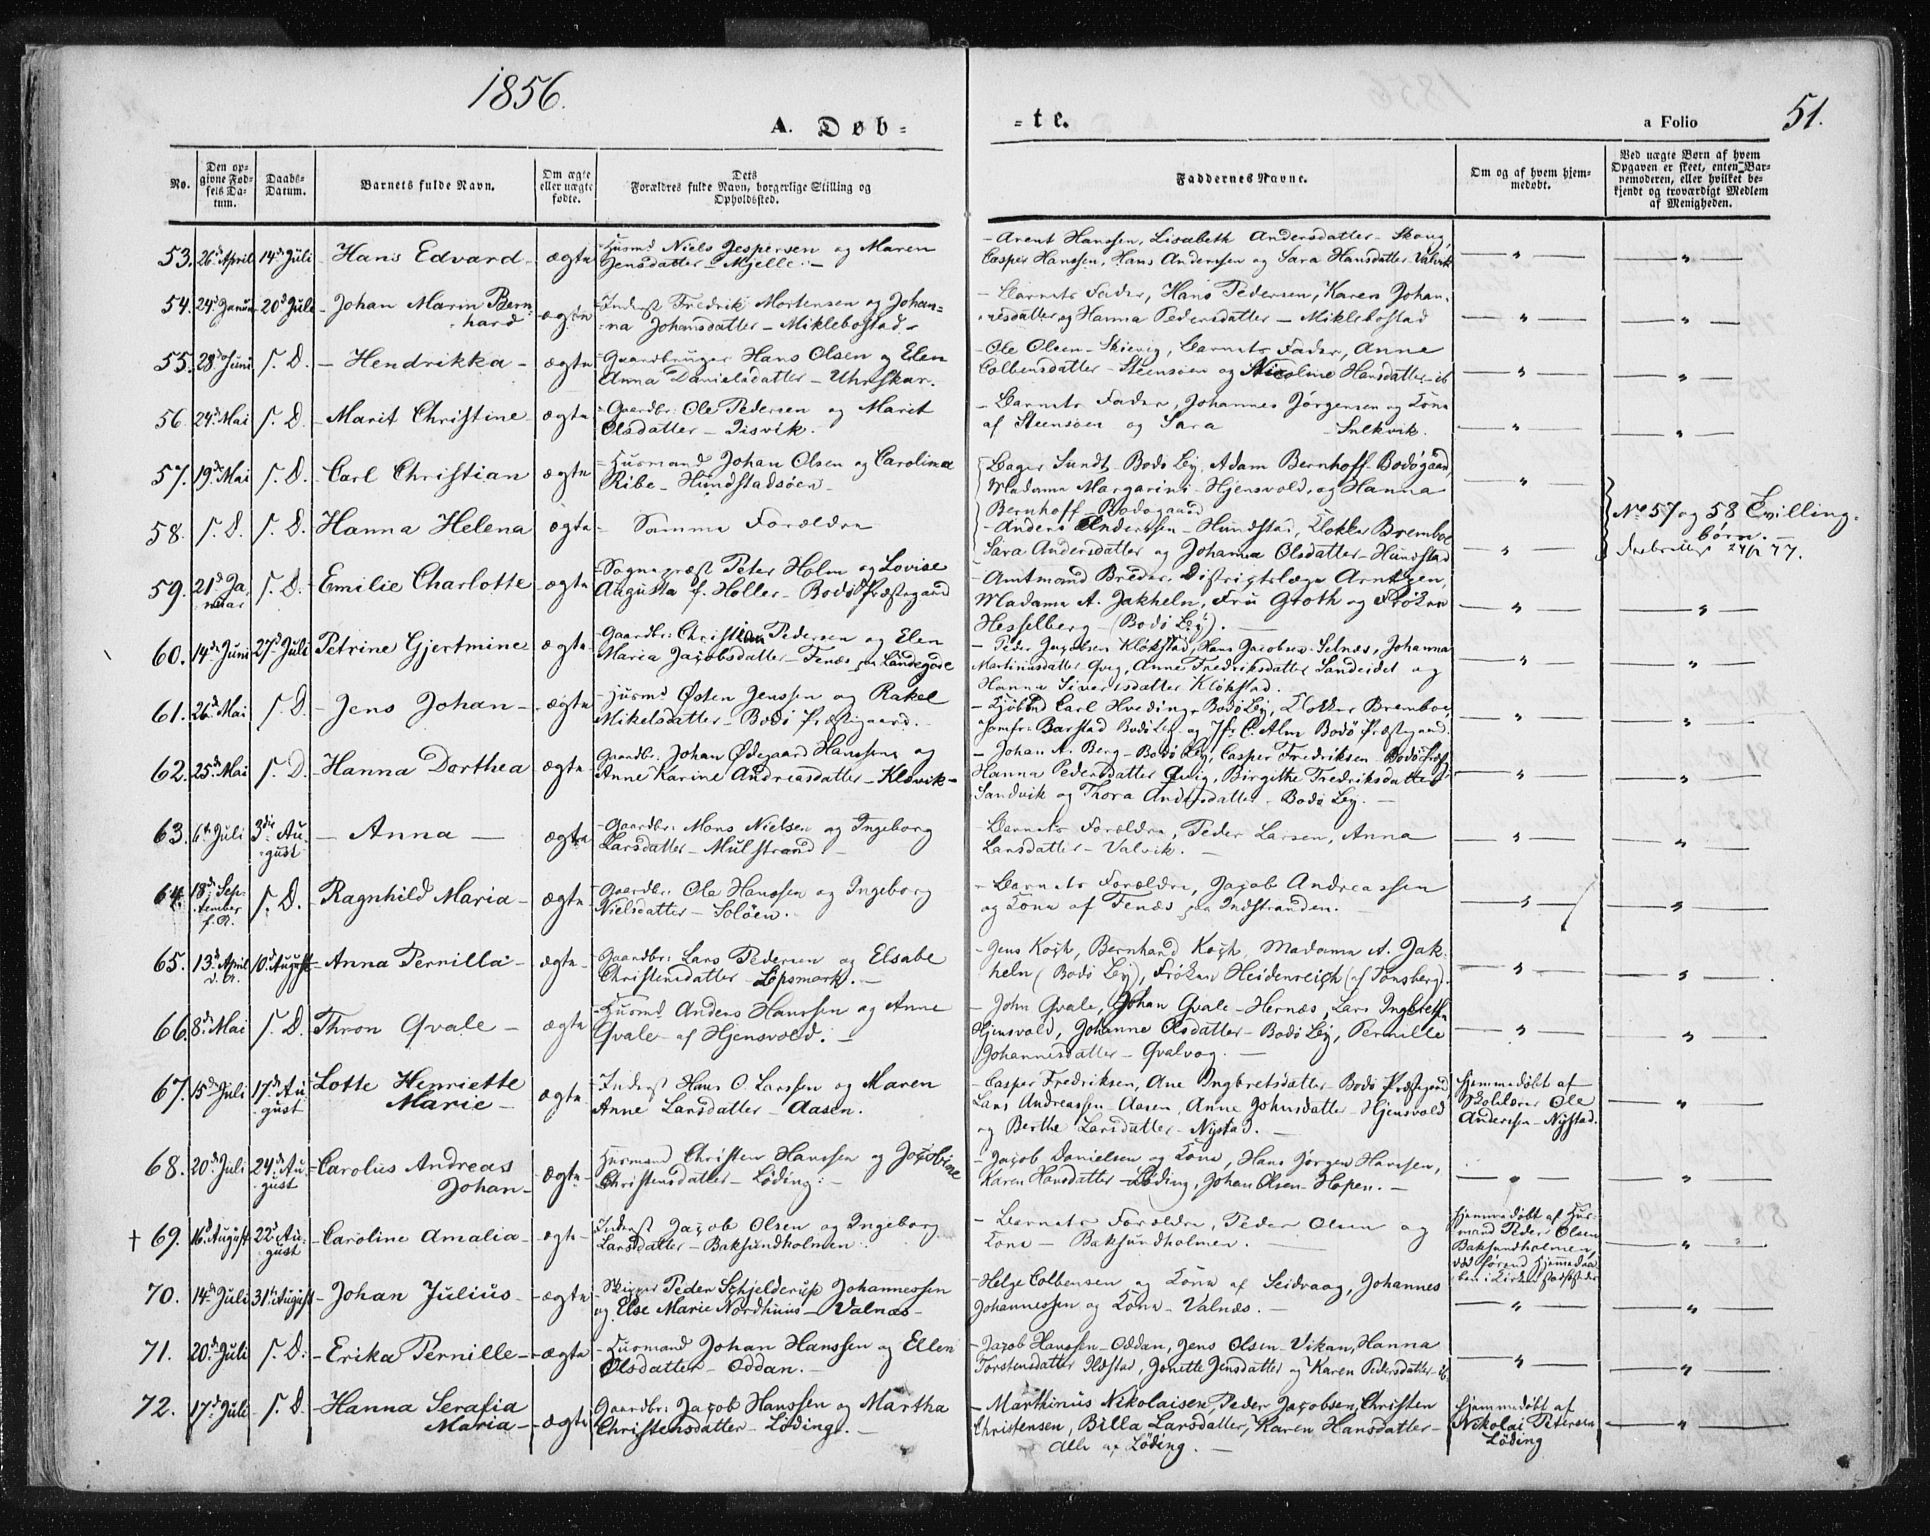 1856.
A. Døb-
-te.
a Folio
51.
No.
Den op-
givne Fød-
sels Da-
tum.
Daabs-
Datum.
Barnets fulde Navn.
Om ægte
eller uægte
fødte.
Dets
Forældres fulde Navn, borgerlige Stilling og
Opholdssted.
Faddernes Navne.
Om og af hvem hjem-
medøbt.
Ved uægte Børn af hvem
Opgaven er skeet, enten Bar-
nemoderen, eller hvilket be-
kjendt og troværdigt Medlem
af Menigheden.
53. 26de April 14de Juli - Hans Edvard - ægte - Husmd Niels Jespersen og Maren
Jensdatter - Mjelle. -
- Arent Hanssen, Lisabeth Andersdatter - Skoug,
Casper Hanssen, Hans Anderssen og Sara Hansdatter - Valvik
54. 24de Januar 20de Juli - Johan Marin Bern-
hard - ægte - Inderst Fredrik Mortensen og Johan-
na Johansdatter - Miklebostad -
- Barnets Fader, Hans Pedersen, Karen Johan-
nesdatter og Hanna Pedersdatter - Miklebostad
55. 28de Juni S. D. - Hendrikka - ægte - Gaardbruger Hans Olsen og Elen
Anna Danielsdatter - Uhrskar.
- Ole Olsen - Skivig, Barnets Fader, Anne
Colbensdatter - Steensøen og Nicoline Hansdatter - ib
56. 24de Mai S. D. - Marit Christine - ægte - Gaardbr: Ole Pedersen og Marit
Olsdatter - Tisvik.
- Barnets Fader, Johannes Jørgensen og Kone
af Steensøen og Sara - Sulkvik.
57. 19de Mai S. D. - Carl Christian - ægte - Husmand Johan Olsen og Carolina
Ribe - Hundstadsøen -
Bager Sundt - Bodø By, Adam Bernhoff - Bodøgaard,
Madame Margarini - Hjensvold, og Hanna
Bernhoff - Bodøgaard
58. S. D. S. D. Hanna Helena ægte - Samme Forældre
- Anders Anderssen - Hundstad, Klokker Bremboe
Sara Andersdatter og Johanna Olsdatter - Hundstad
No 57 og 58 Tvilling-
børn. -
59. 21de Ja-
nuar S. D. - Emilie Charlotte - ægte - Sognepræst Peter Holm og Lovise
Augusta f. Holler - Bodø Præstegaard
- Amtmand Breder, Distrigtslæge Arntzen,
Madame A. Jakheln, Fru Groth og Frøken
Hesselberg - (Bodø By). -
60. 14de Juni 27de Juli - Petrine Gjertmine - ægte - Gaardbr: Christian Pedersen og Elen
Maria Jacobsdatter - Fenæs paa Landegode
- Peder Jacobsen Kløkstad, Hans Jacobsen - Selnæs, Johanna
Martinusdatter Qvig, Anne Fredriksdatter Sandeidet og
Hanna Siversdatter Kløkstad.
61. 26de Mai S. D. - Jens Johan - ægte - Husmd Østen Jenssen og Rakel
Mikelsdatter - Bodø Præstegaard. -
- Kjøbmd Carl Hveding - Bodø By, Klokker Bremboe,
Jomfr: Barstad Bodø By og Jfr C. Alm Bodø Præstegaard
62. 25de Mai S. D. - Hanna Dorthea - ægte - Gaardbr: Johan Ødegaard Hanssen og
Anne Karine Andreasdatter - Klevik -
- Johan A. Berg - Bodø By, Casper Fredriksen - Bodø Præst,
Hanna Pedersdatter Qvig, Birgithe Fredriksdatter
Sandvik og Thora Andersdatter - Bodø By. -
63. 6te Juli 3die Au-
gust - Anna - ægte - Gaardbr: Mons Nielsen og Ingeborg
Larsdatter - Mulstrand -
- Barnets Forældre, Peder Larsen, Anna
Larsdatter - Valvik. -
64. 18de Sep-
tember
f. A. S. D. Ragnhild Maria - ægte - Gaardbr: Ole Hanssen og Ingeborg
Nielsdatter - Soløen. -
- Barnets Forældre, Jacob Andreassen
og Kone af Fenæs paa Indstranden. -
65. 13de April
d. A. 10de August - Anna Pernilla - ægte - Gaardbr: Lars Pedersen og Elsabe
Christensdatter - Løpsmark. -
- Jens Koch, Bernhard Koch, Madame A. Jak-
heln (Bodø By), Frøken Heidenreich (af Tønsberg).
66. 8de Mai S. D. Thron Qvale - ægte - Husmd Anders Hanssen og Anne
Qvale - af Hjensvold. -
- John Qvale, Johan Qvale - Hernæs, Lars Ingbretsen
Hjensvold, Johanne Olsdatter - Bodø By, Pernille
Johannesdatter - Qvalvog. -
67. 15de Juli 17de Au-
gust Lotte Henriette
Marie - ægte - Inderst Hans O. Larssen og Maren
Anne Larsdatter - Aasen.
- Casper Fredriksen, Ane Ingbretsdatter - Bodø Præstegaard,
Lars Andreassen - Aasen, Anne Johnsdatter - Hjensvold
og Berthe Larsdatter - Nystad. -
Hjemmedøbt af
Skolelærer Ole
Anderssen - Nystad.
68. 20de Juli 24de Au-
gust - Carolus Andreas
Johan - ægte - Husmand Christen Hanssen og Jacobine
Christensdatter - Løding. -
- Jacob Danielsen og Kone, Hans Jørgen Hanssen,
Karen Hansdatter - Løding, Johan Olsen - Hopen. -
† 69. 16de August 22de Au-
gust - Caroline Amalia - ægte - Inderst Jacob Olsen og Ingeborg
Larsdatter - Baksundholmen.
- Barnets Forældre, Peder Olsen og
Kone - Baksundholmen. -
Hjemmedøbt af Hus-
mand Peder Olsen
Baksundholmen,
70. 14de Juli 31te August - Johan Julius - ægte - Skipper Peder Schjelderup Johannessen
og Else Marie Nordhuus - Valnæs -
- Helge Colbensen og Kone af Seidvaag, Johannes
Johannessen og Kone - Valnæs. -
71. 20de Juli S. D. - Erika Pernille - ægte - Husmand Johan Hanssen og Ellen
Olsdatter - Oddan. -
- Jacob Hanssen - Oddan, Jens Olsen - Vikan, Hanna
Torstensdatter Ildstad, Jonette Jensdatter og Karen Pedersdatter - ib
72. 17de Juli S. D - Hanna Serafia
Maria - ægte - Gaardbr: Jacob Hanssen og Martha
Christensdatter - Løding. -
- Marthinus Nikolaisen, Peder Jacobsen, Christen
Christensen, Billa Larsdatter, Karen Hansdatter -
alle af Løding. -
Hjemmedøbt af
Nikolai Petersen
Løding